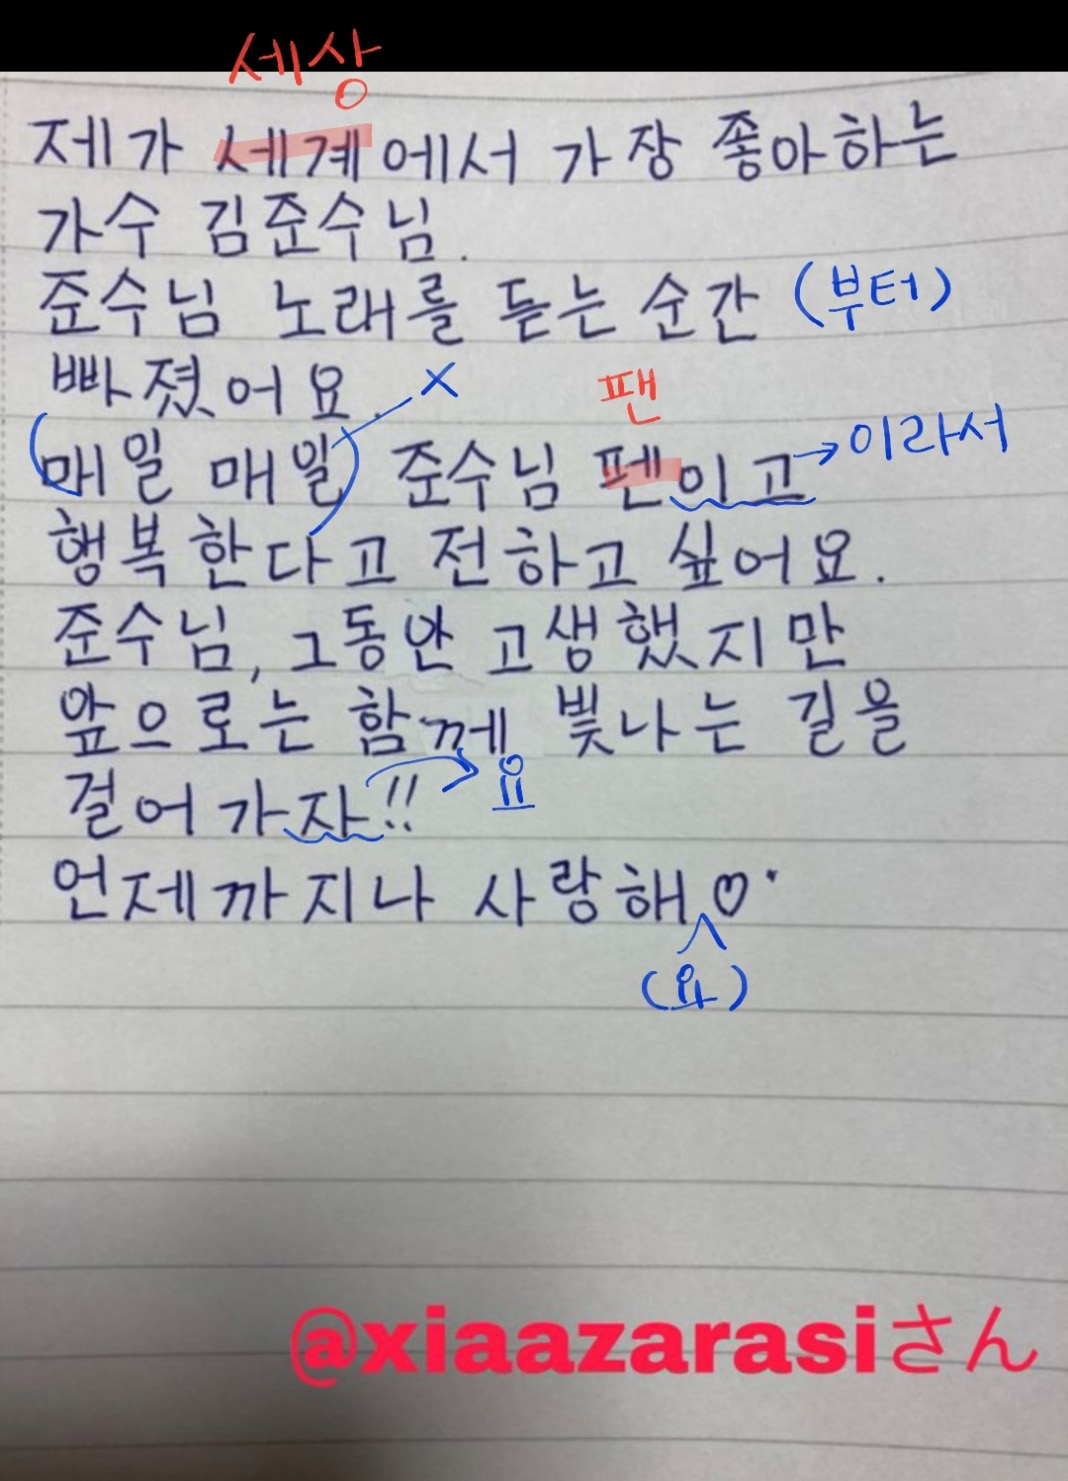 세상
제가 세계에서 가장 좋아하는
가수 김준수님.
준수님 노래를 듣는 순간 (부터)
빠졌어요. X
팬
(매일 매일) 준수님 펜이고 → 이라서
행복한다고 전하고 싶어요.
준수님, 그동안 고생했지만
앞으로는 함께 빛나는 길을
걸어가자!! → 요
언제까지나 사랑해♡
(와)
@xiaazarasiさん